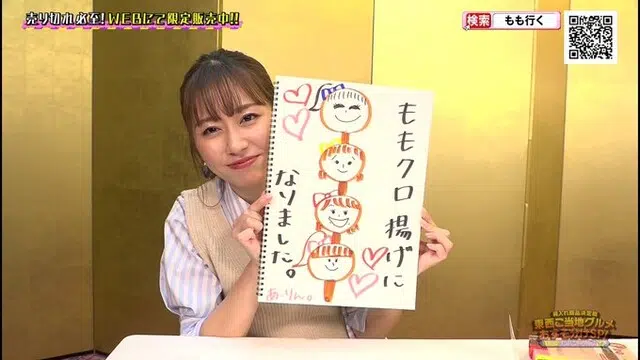 売り切れ必至!WEBにて限定販売中!!
検索 もも行く
ももクロ 揚げに
なりました。
あーりん。
東西ご当地グルメ